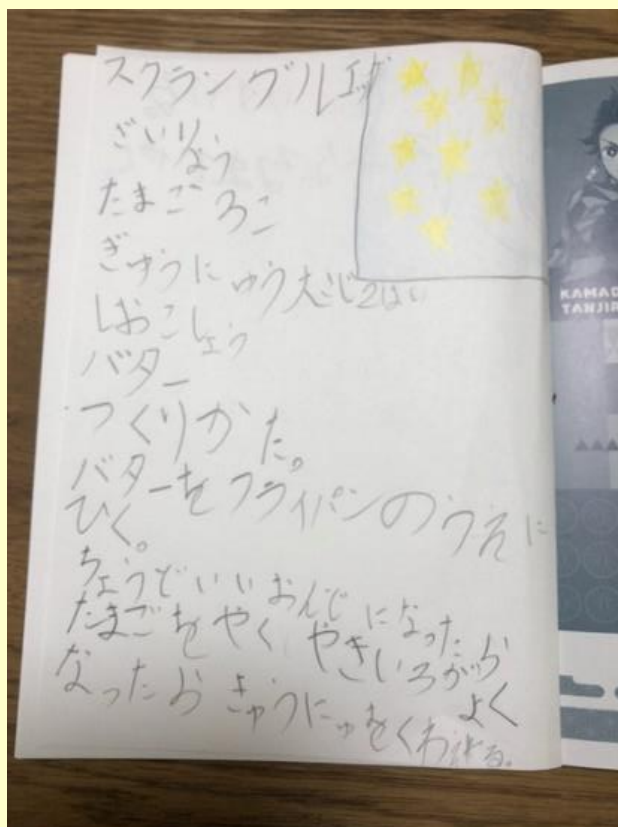 スクランブルエッグ
ざいりょう
たまご ろこ
ぎゅうにゅう大さじ2はい
しおこしょう
バター
つくりかた。
バターをフライパンのうえに
ひく。
ちょうどいいおんどになったら
たまごをやく やきいろがよく
なったら ぎゅうにゅをくわえる。
KAMAD
TANJIR